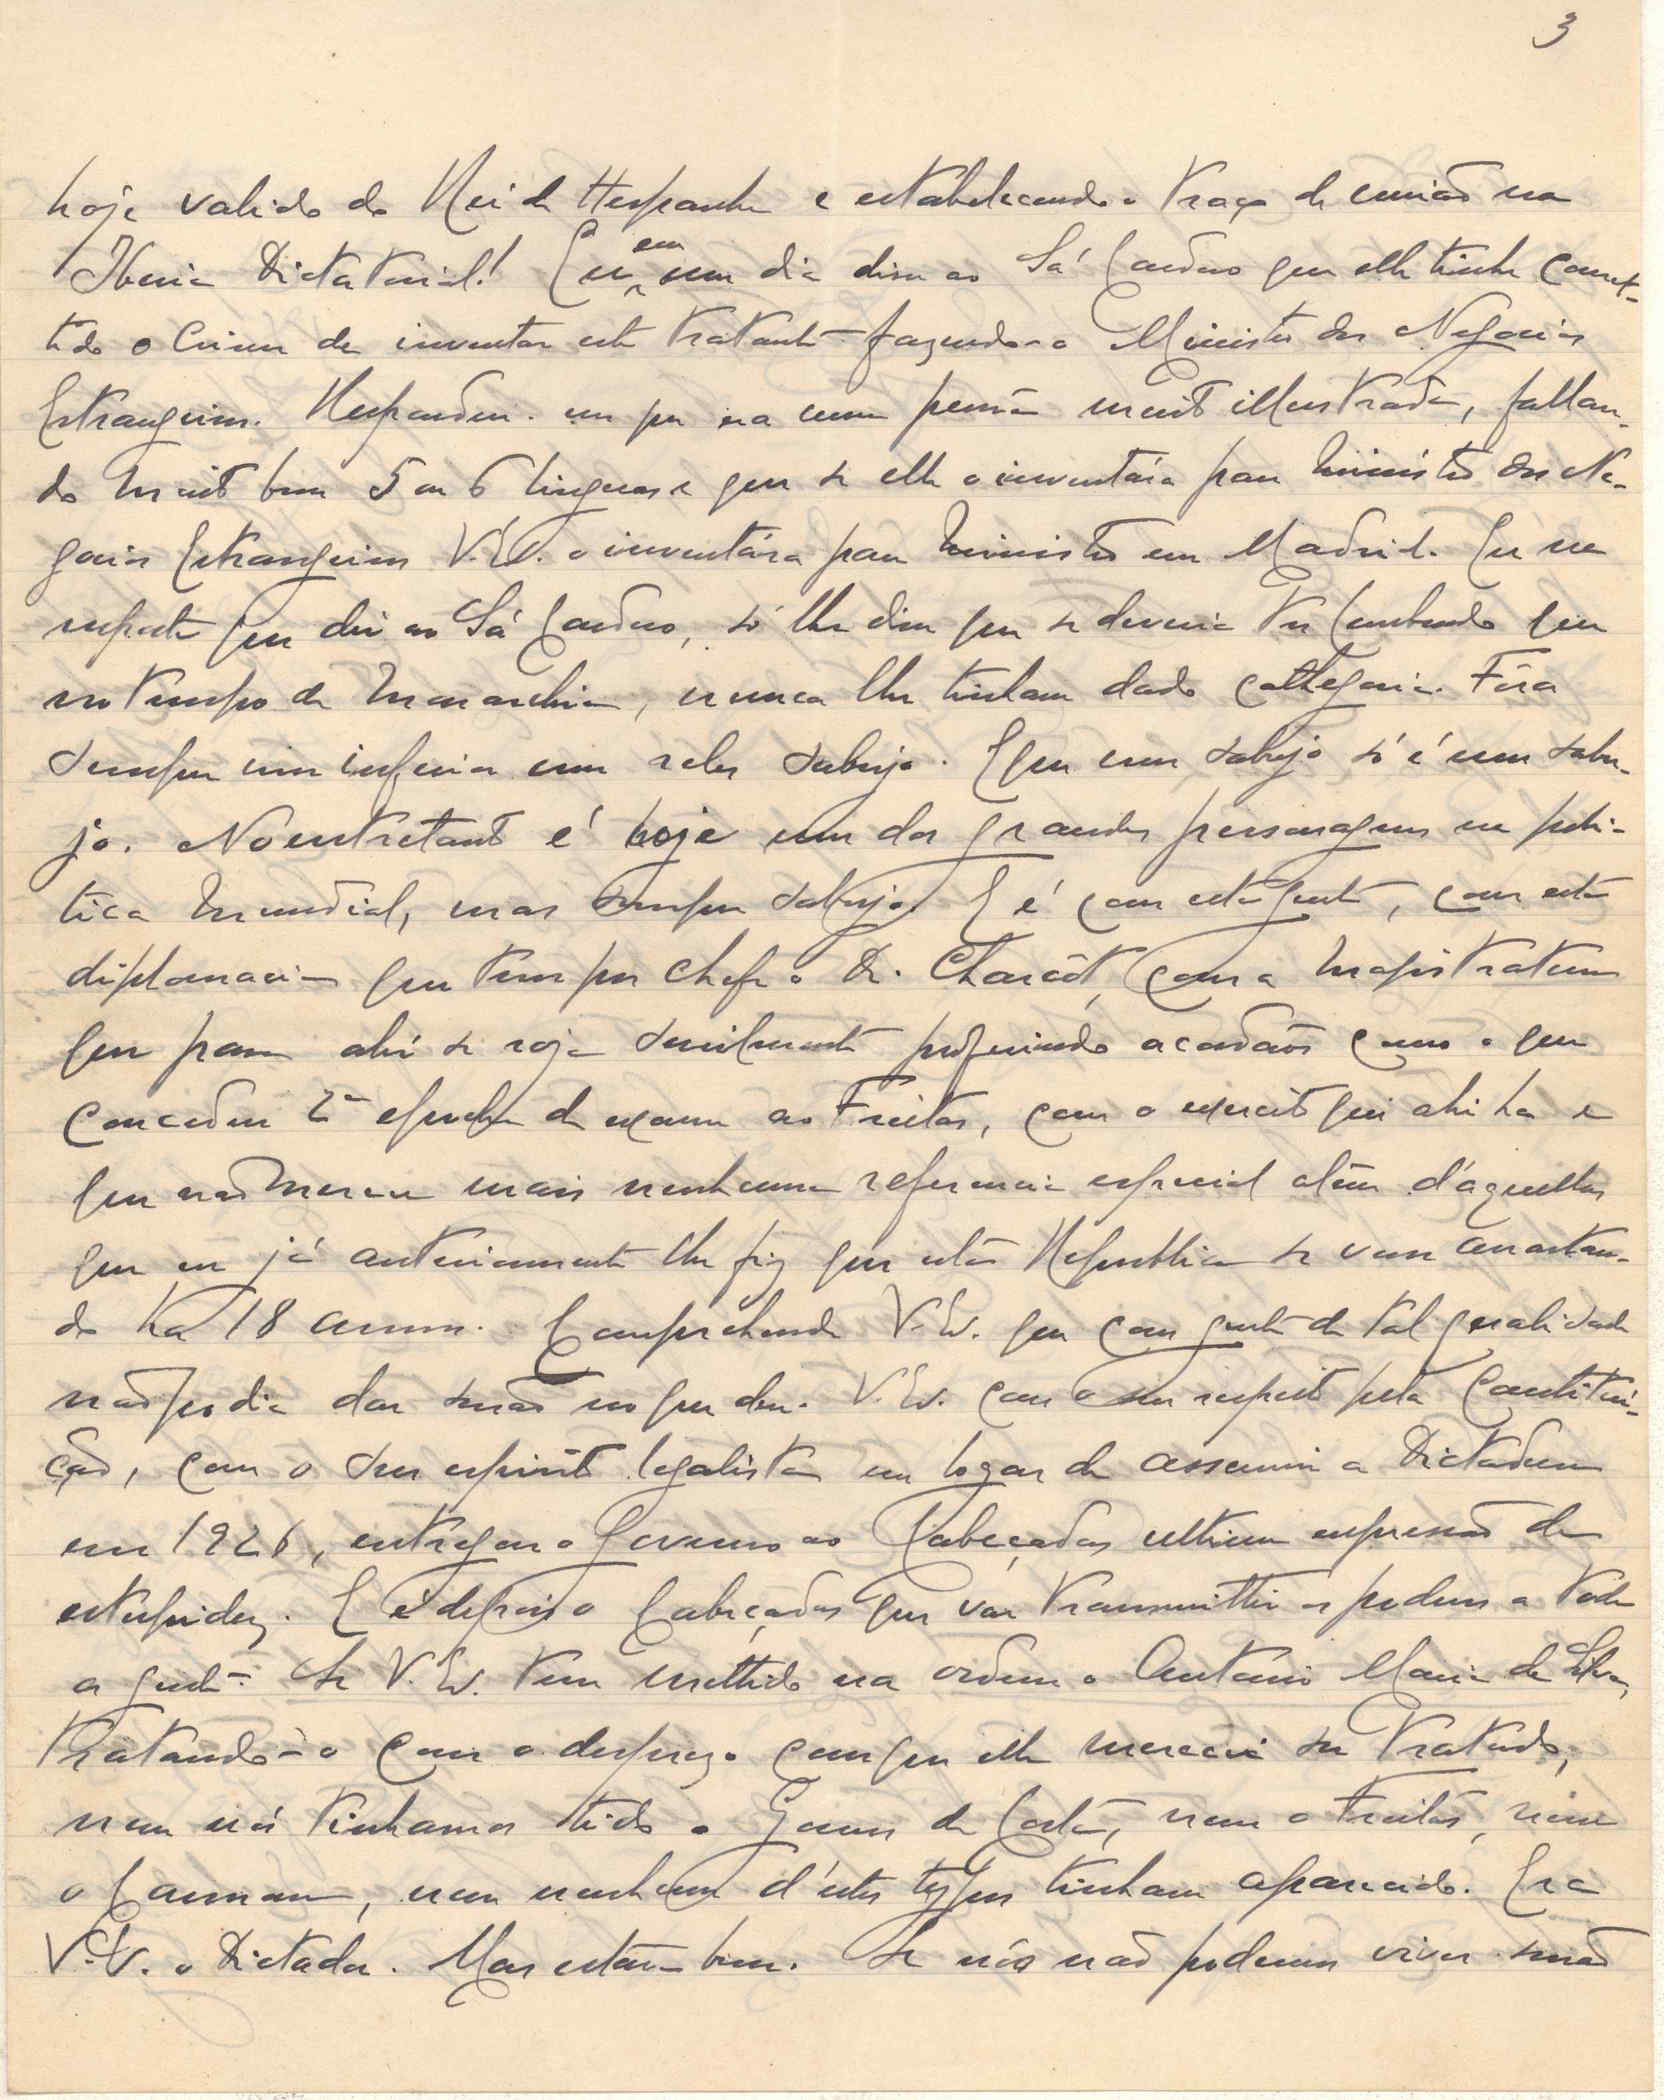 3
hoje valido do Rei de Hespanha e estabelecendo o traço de união na
Iberia Dictatorial! Eu em um dia disse ao Sá Cardoso que elle tinha comet-
tido o Crime de inventar este tratante fazendo-o Ministro dos Negocios
Estrangeiros. Respondeu-me que era uma pessôa muito illustrada, fallan-
do muito bem 5 ou 6 linguas e que se elle o inventára para Ministro dos Ne-
gocios Estrangeiros V. Ex. o inventára para Ministro em Madrid. Eu na
resposta que dei ao Sá Cardoso, só lhe disse que se deveria ter lembrado que
no tempo da Monarchia, nunca lhe tinham dado cathegoria. Fôra
sempre um inferior um reles sabujo. E que um sabujo só é um sabu-
jo. No entretanto é hoje um dos grandes personagens na poli-
tica Mundial, mas sempre sabujo. E é com esta gente, com esta
diplomacia que tem por chefe o Dr. Charcôt, com a Magistratura
que para ahi se roja servilmente proferindo acordãos como o que
concedeu 2ª epocha de exame ao Freitas, com o exercito que ahi ha e
que não merece mais nenhuma referencia especial alem d'aquellas
que eu já anteriormente lhe fiz que esta Republica se vem arrastan-
do ha 18 annos. Comprehende V. Ex. que com gente de tal qualidade
não podia dar senão no que deu. V. Ex. com o seu respeito pela Constitui-
ção, com o seu espirito legalista em logar de assumir a Dictadura
em 1926, entregou o Governo ao Cabeçadas ultima expressão da
estupidez. E é depois o Cabeçadas que vae transmittir os poderes a toda
a gente. Se V. Ex. tem mettido na ordem o Antonio Maria da Silva,
tratando-o com o desprezo com que elle merecia ser tratado,
nem nós tinhamos tido o Gomes da Costa, nem o Freitas, nem
o Carmona, nem nenhum d'estes typos tinham aparecido. Era
V. Ex. o Dictador. Mas está bem. Se nós não podemos viver senão